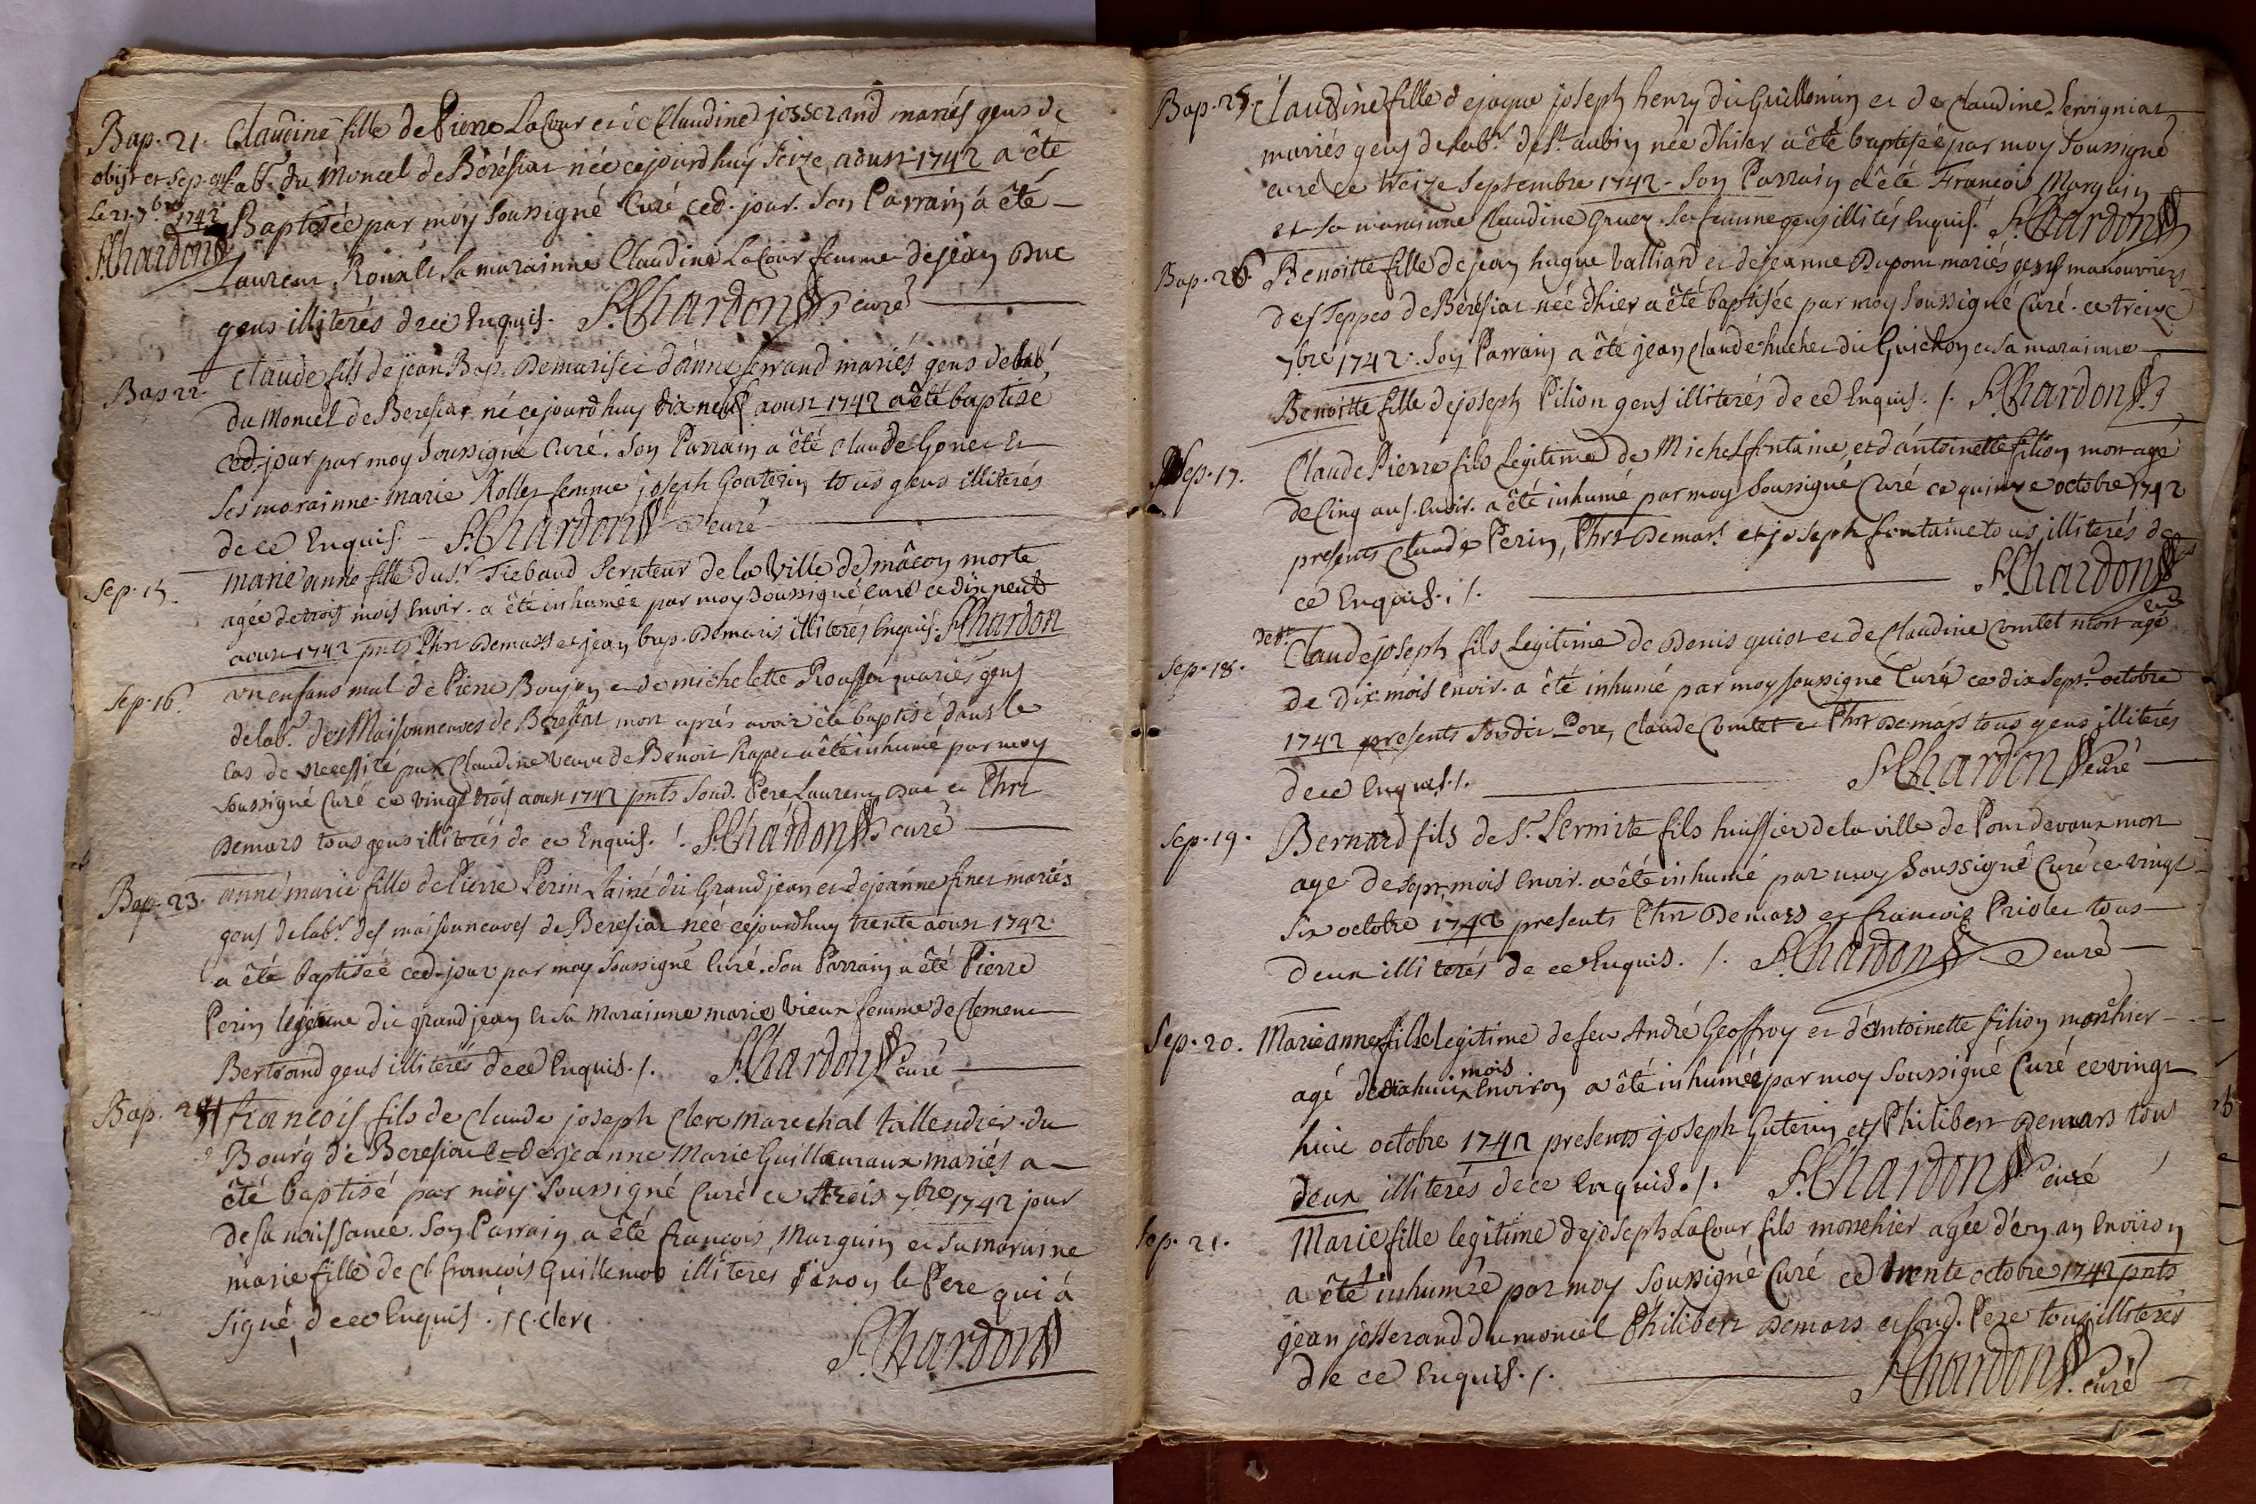 Bap. 21. Claudine fille de Pierre Lacour et de Claudine josserand mariés gens de
obijt et Sep. est lab.r du Moncel de Bérésiat née cejourdhuy seize aoust 1742 a été
Le 21. 7.bre 1742 Baptisée par moy soussigné Curé ced. jour. Son Parrain a été
F. Chardon Laurent Roux et sa marainne Claudine Lacour femme de jean Duc
gens illiterés de ce Enquis. F. Chardon curé
Bap 22. Claude fils de jean Bap. Demaris et d'anne ferrand mariés gens de lab.r
du Moncel de Beresiat né cejourdhuy dix neuf aoust 1742 a été baptisé
ced. jour par moy soussigné Curé. Son Parrain a été Claude Gonet et
sa morainne marie Rollet femme joseph Gouterin tous gens illiterés
de ce Enquis. F. Chardon curé
Sep. 15. marie anne fille du s.r Tiebaud Serviteur de la Ville de mâcon morte
agée de trois mois Envir. a été inhumée par moy soussigné Curé ce dix neuf
aoust 1742 pnts Phrt Demars et jean bap. Demaris illiterés Enquis. F. Chardon
Sep. 16. un enfans mal de Pierre Boujon et de michelette Rousset mariés gens
de lab.r des Maisonneuves de Beresiat mort aprés avoir été baptisé dans le
Cas de Necessité par Claudine veuve de Benoit Raper a été inhumé par moy
soussigné Curé ce vingt trois aoust 1742 pnts Sond. Pere Laurent Duc et Phrt
Demars tous gens illiterés de ce Enquis. F. Chardon curé
Bap. 23. anne marie fille de Pierre Perin Lainé dit Grandjean et de jeanne finet mariés
gens de lab.r des maisonneuves de Beresiat née cejourdhuy trente aoust 1742
a été baptisée ced. jour par moy soussigné Curé. Son Parrain a été Pierre
Perin le jeune dit grandjean et sa Marainne marie Vieux femme de Clement
Bertrand gens illiterés de ce Enquis. F. Chardon curé
Bap. 24 francois fils de Claude joseph Clerc marechal tallendier du
Bourg de Beresiat et de jeanne Marie Guillemaux mariés a
été baptisé par moy soussigné Curé ce trois 7.bre 1742 jour
de sa naissance. Son Parrain a été francois Marguin et sa maraine
marie fille de Cl. francois Guillemos illiteres sinon le Pere qui a
signé de ce Enquis. C. Clerc
F. Chardon
Bap. 25. Claudine fille de jaque joseph henry dit Guillemin et de Claudine Servigniat
mariés gens de lab.r de St. aubin née d'hier a été baptisée par moy soussigné
curé ce treize Septembre 1742. Son Parrain a été Francois Marguin
et sa marainne Claudine Gruer sa femme gens illités Enquis. F. Chardon
Bap. 26 Benoitte fille de jean hugue Valliard et de jeanne Dupont mariés gens manouvriers
des Teppes de Bérésiat née d'hier a été baptisée par moy soussigné Curé. ce treize
7.bre 1742. Son Parrain a été jean Claude huchet dit Guichon et sa marainne
Benoitte fille de joseph Pilion gens illiterés de ce Enquis. /. F. Chardon
Sep. 17. Claude Pierre fils Legitime de Michel fontaine et d'antoinette filion mort agé
de Cinq ans. Envir. a été inhumé par moy soussigné Curé ce quinze octobre 1742
presents Claude Perin, Phrt Demars et joseph fontaine tous illiterés de
ce Enquis. /. F. Chardon curé
Sep. 18. Claude joseph fils Legitime de Denis guiot et de Claudine Comtet mort agé
de Dix mois Envir. a été inhumé par moy soussigné Curé ce dix Sept octobre
1742 presents Sondit Pere, Claude Comtet et Phrt Demars tous gens illiterés
de ce Enquis. /. F. Chardon curé
Sep. 19. Bernard fils de S.r Lermite fils huissier de la ville de Pondevaux mort
age de sept mois Envir. a été inhumé par moy soussigné Curé ce vingt
six octobre 1742 presents Phrt Demars et francois Priolet tous
deux illiterés de ce Enquis. /. F. Chardon curé
Sep. 20. Marie anne fille legitime de feu André Geoffroy et d'antoinette filion morte hier
agé de dix huit mois Environ a été inhumée par moy soussigné Curé ce vingt
huit octobre 1742 presents joseph Guterin et Philibert Demars tous
deux illiterés de ce Enquis. /. F. Chardon curé
Sep. 21. Marie fille legitime de joseph Lacour fils morte hier agée d'un an Environ
a été inhumée par moy soussigné Curé ce trente octobre 1742 pnts
jean josserand du moncel Philibert Demars et Sond. Pere tous illiterés
de ce Enquis. /. F. Chardon curé